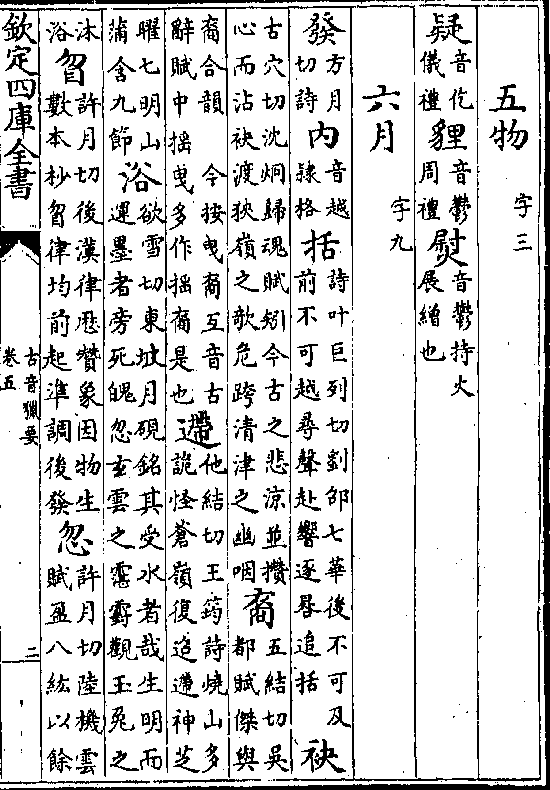 五物 字三
疑音仡儀禮貍音鬱周禮熨音鬱持火展繒也
六月 字九
發方月切詩内音越隸格括詩叶巨列切劉邵七華後不可及前不可越尋聲赴響逐晷追括袂
古穴切沈炯歸魂賦矧今古之悲涼並攢心而沾袂渡狹嶺之欹危跨清津之幽咽裔五結切吳都賦傑與
裔合韻 今按曳裔互音古辭賦中揺曳多作揺裔是也遰他結切王筠詩燒山多詭怪蒼嶺復迢遰神芝
曜七明山蒲含九節浴欲雪切東坡月硯銘其受水者哉生明而運墨者旁死魄忽玄雲之霮䨴觀玉兎之
沐浴曶許月切後漢律厯贊象因物生數本杪曶律均前起準調後發忽許月切陸機雲賦盈八紘以餘
欽定四庫全書
古音獵要
卷五
二